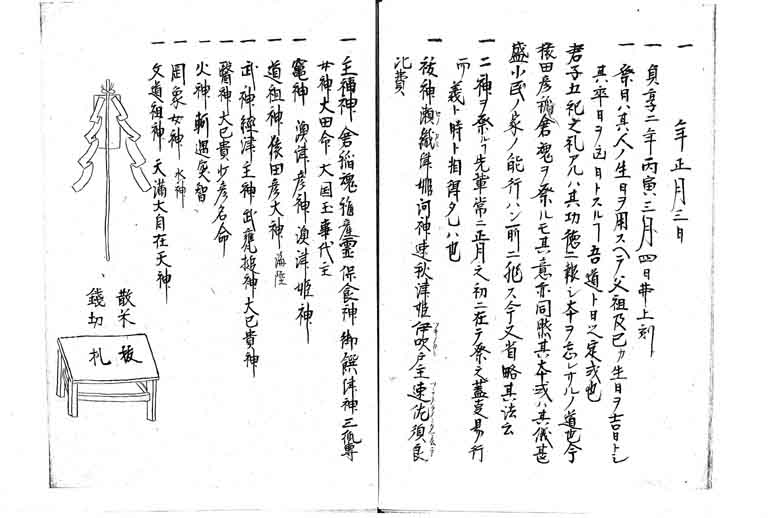 一 年正月三日
一 貞享二年丙寅三月四日井上刻
一 祭日ハ其人ノ生日ヲ用スヘテ父祖及己カ生日ヲ吉日トシ
其卒日ヲ凶日トスルハ吾道ト日之定式也
君子五祀之礼アルハ其功徳ニ報シ本ヲ忘レサルノ道也今
猿田彦稲倉魂ヲ祭ルモ其意亦同然其本或ハ其儀甚
盛小民ノ家ノ能行ハン所ニ非ス今又省略其法云
一 二神ヲ祭ルヿ先輩常ニ正月之初ニ在テ祭之蓋是易行
而義ト時ト相得タレハ也
祓神瀬織津姫河神速秋津姫伊吹戸主速佐須良
比賣
一 主福神 倉稲魂稚産霊保食神御饌津神三狐専
女神大田命大国玉事代主
一 竈神 澳津彦神澳津姫神
一 道祖神 猿田彦大神 海陸
一 武神 經津主神武甕槌神大己貴神
一 醫神大己貴少彦名命
一 火神 軻遇突智
一 罔象女神 水神
一 文道祖神 天満大自在天神
散米
錢切
板
札